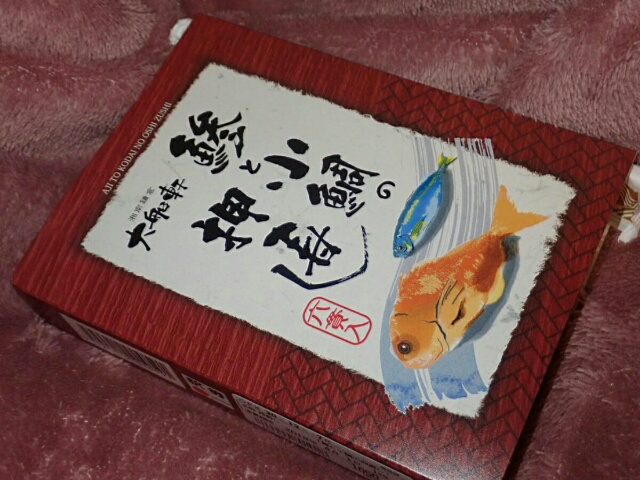 AJI TO KODAI NO OSHI ZUSHI
鯵と小鯛の
押寿し
湘南鎌倉
大船軒
六貫入